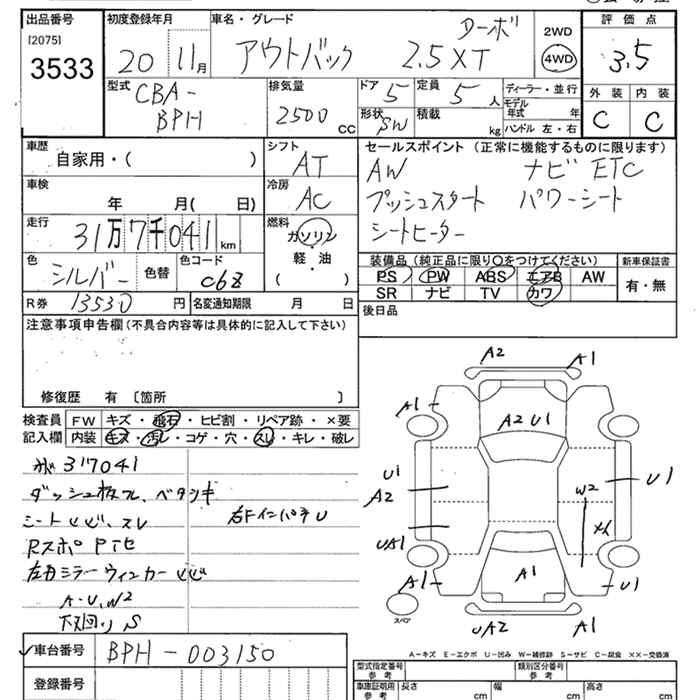 出品番号
[2075]
3533
初度登録年月
20 11月
車名・グレード
ターボ
アウトバック 2.5XT
2WD
4WD
評価点
3.5
型式
CBA-
BPH
排気量
2500
CC
ドア 5
形状 SW
定員 5 人
積載 kg
ディーラー・並行
モデル
年式 年
ハンドル 左・右
外装 内装
C C
車歴
自家用・( )
シフト
AT
車検
年 月( 日)
冷房
AC
走行
31万7千041km
燃料
ガソリン
・
軽油
・
( )
色
シルバー
色替
色コード
C6Z
R券 13530 円
名変通知期限 月 日
セールスポイント (正常に機能するものに限ります)
AW ナビ ETC
プッシュスタート パワーシート
シートヒーター
装備品(純正品に限り○をつけてください)
PS PW ABS エアB AW
SR ナビ TV カワ
新車保証書
有・無
後日品
注意事項申告欄(不具合内容等は具体的に記入して下さい)
修復歴 有 〔箇所 〕
検査員
記入欄
FW キズ・飛石・ヒビ割・リペア跡・×要
内装 キズ・汚レ・コゲ・穴・スレ・キレ・破レ
317041
ダッシュ板ズレ、ベタツキ
シート スレ
右Fインパネ U
左右ミラーウィンカー
A・U、W2
下廻り S
A2 A1
A1
A2 U1
U1
A2
U1
W2
UA1
A1
A1
U1
スペア
UA2 A1
A-キズ E-エクボ U-凹み W-補修跡 S-サビ C-腐食 XX-交換済
車台番号 BPH-003150
登録番号
型式指定番号
参考
類別区分番号
参考
車庫証明用
参考
長さ cm
幅 cm
高さ cm